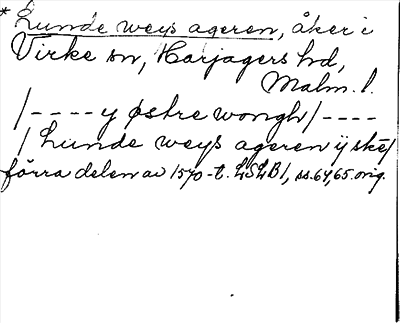 * Lunde weys ageren, åker i
Virke sn, Harjagers hd,
Malm. l.
/----y østre wongh/----
/ Lunde weys ageren ij ske/
förra delen av 1570-t. LSLB1, ss. 64, 65. orig.